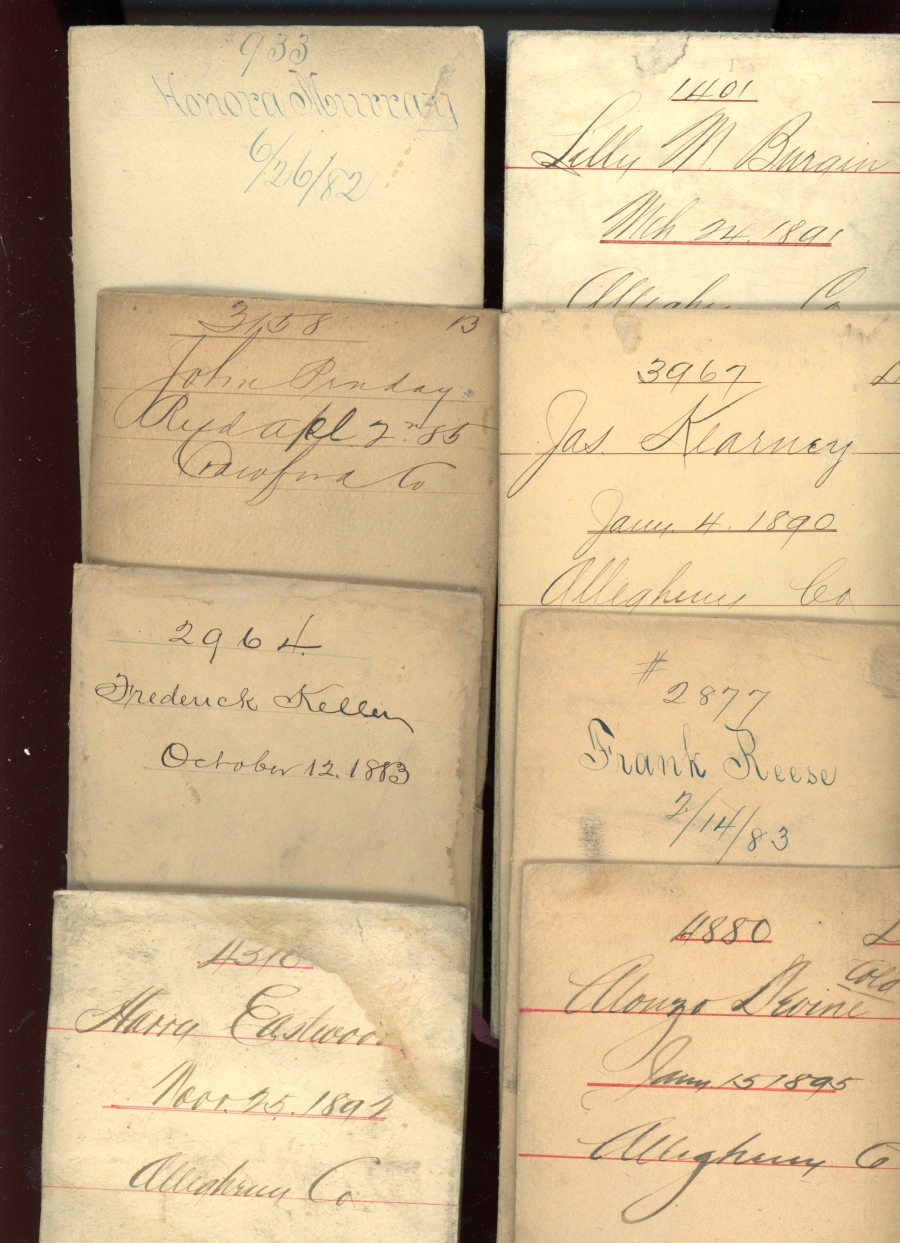 933
Honora Murray
6/26/82
3158 B
John Penday
Recd apl 2nd 85
Crawford Co
2964
Frederick Keller
October 12. 1883
4310
Harry Eastwoo
Nov. 25. 1892
Allegheny Co
1401
Lilly M. Burgin
Mch 24. 1891
Allegheny Co
3967
Jas. Kearney
Jany. 4. 1890
Allegheny Co
# 2877
Frank Reese
2/14/83
4880
Cold
Alonzo Devine
Jany 15 1895
Allegheny Co